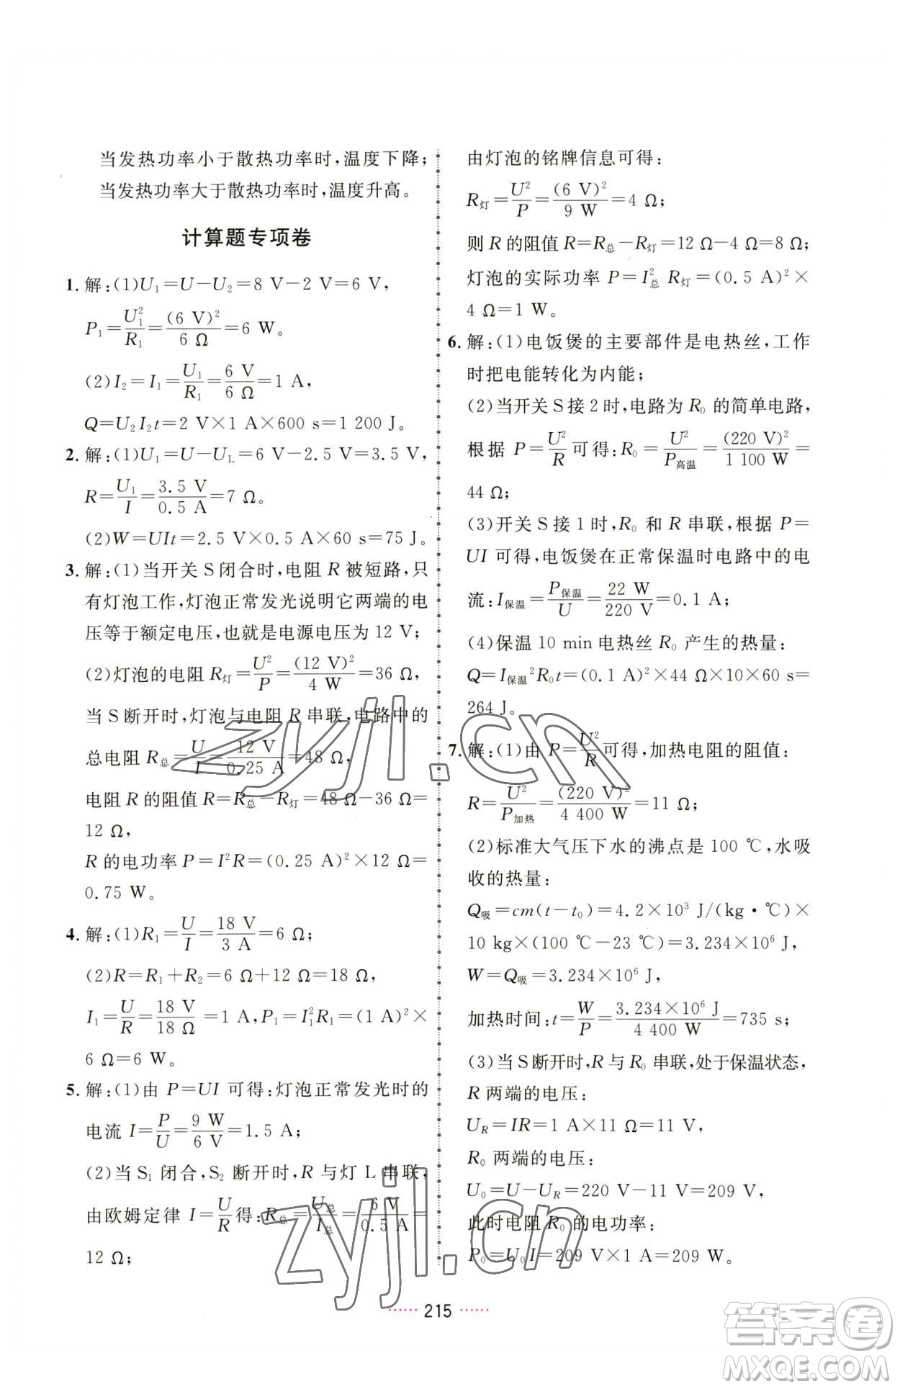 当发热功率小于散热功率时,温度下降;
当发热功率大于散热功率时,温度升高。
计算题专项卷
1. 解:(1)U₁=U−U₂=8 V−2 V=6 V,
P₁=U₁²/R₁=(6 V)²/6 Ω=6 W。
(2)I₂=I₁=U₁/R₁=6 V/6 Ω=1 A,
Q=U₂I₂t=2 V×1 A×600 s=1 200 J。
2. 解:(1)U₁=U−U_L=6 V−2.5 V=3.5 V,
R=U₁/I=3.5 V/0.5 A=7 Ω。
(2)W=UIt=2.5 V×0.5 A×60 s=75 J。
3. 解:(1)当开关 S 闭合时,电阻 R 被短路,只
有灯泡工作,灯泡正常发光说明它两端的电
压等于额定电压,也就是电源电压为 12 V;
(2)灯泡的电阻 R灯=U²/P=(12 V)²/4 W=36 Ω,
当 S 断开时,灯泡与电阻 R 串联,电路中的
总电阻 R总=U/I=12 V/0.25 A=48 Ω,
电阻 R 的阻值 R=R总−R灯=48 Ω−36 Ω=
12 Ω,
R 的电功率 P=I²R=(0.25 A)²×12 Ω=
0.75 W。
4. 解:(1)R₁=U/I=18 V/3 A=6 Ω;
(2)R=R₁+R₂=6 Ω+12 Ω=18 Ω,
I₁=U/R=18 V/18 Ω=1 A,P₁=I₁²R₁=(1 A)²×
6 Ω=6 W。
5. 解:(1)由 P=UI 可得:灯泡正常发光时的
电流 I=P/U=9 W/6 V=1.5 A;
(2)当 S₁ 闭合,S₂ 断开时,R 与灯 L 串联,
由欧姆定律 I=U/R得:R总=U总/I总=6 V/0.5 A=
12 Ω;
由灯泡的铭牌信息可得:
R灯=U²/P=(6 V)²/9 W=4 Ω;
则 R 的阻值 R=R总−R灯=12 Ω−4 Ω=8 Ω;
灯泡的实际功率 P=I总² R灯=(0.5 A)²×
4 Ω=1 W。
6. 解:(1)电饭煲的主要部件是电热丝,工作
时把电能转化为内能;
(2)当开关 S 接 2 时,电路为 R₀ 的简单电路,
根据 P=U²/R可得:R₀=U²/P高温=(220 V)²/1 100 W=
44 Ω;
(3)开关 S 接 1 时,R₀ 和 R 串联,根据 P=
UI 可得,电饭煲在正常保温时电路中的电
流:I保温=P保温/U=22 W/220 V=0.1 A;
(4)保温 10 min 电热丝 R₀ 产生的热量:
Q=I保温²R₀t=(0.1 A)²×44 Ω×10×60 s=
264 J。
7. 解:(1)由 P=U²/R可得,加热电阻的阻值:
R=U²/P加热=(220 V)²/4 400 W=11 Ω;
(2)标准大气压下水的沸点是 100 ℃,水吸
收的热量:
Q吸=cm(t−t₀)=4.2×10³ J/(kg·℃)×
10 kg×(100 ℃−23 ℃)=3.234×10⁶ J,
W=Q吸=3.234×10⁶ J,
加热时间:t=W/P=3.234×10⁶ J/4 400 W=735 s;
(3)当 S 断开时,R 与 R₀ 串联,处于保温状态,
R 两端的电压:
U_R=IR=1 A×11 Ω=11 V,
R₀ 两端的电压:
U₀=U−U_R=220 V−11 V=209 V,
此时电阻 R₀ 的电功率:
P₀=U₀I=209 V×1 A=209 W。
215
zyjl.cn
zyjl.cn
答案圈
MXQE.COM